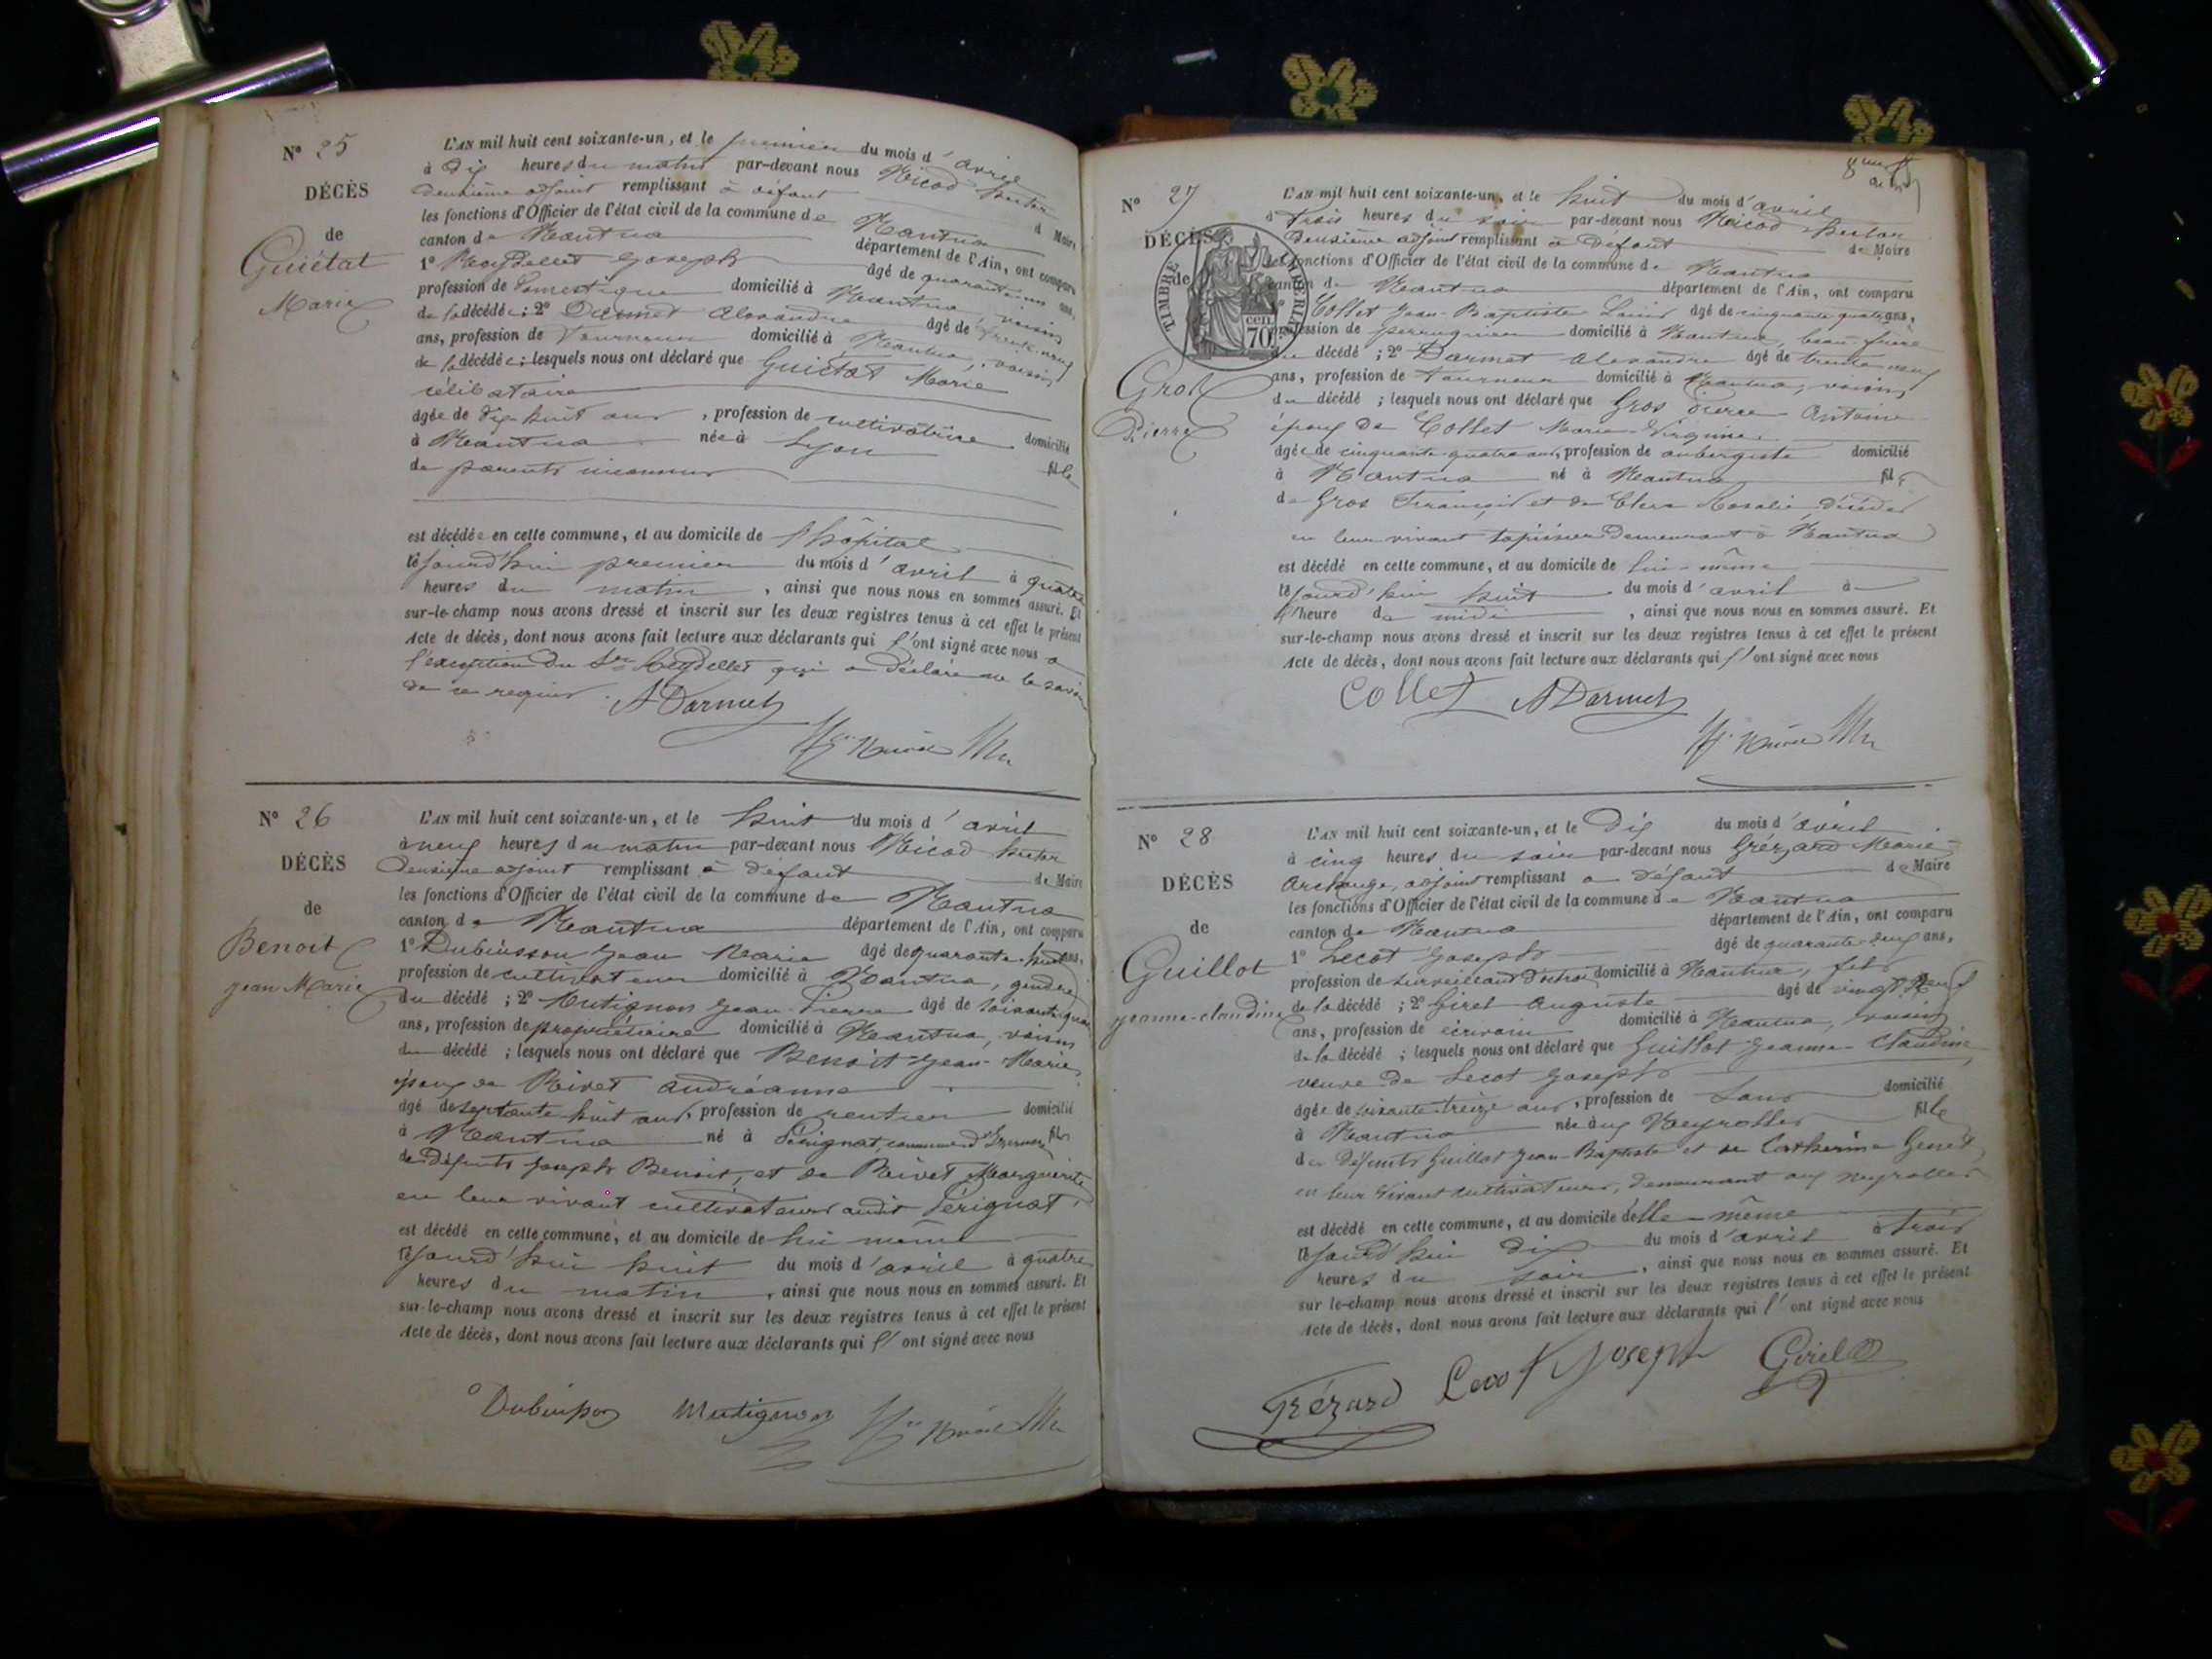 N° 25
DÉCÈS
de
Guiétat
Marie
L'AN mil huit cent soixante-un, et le premier du mois d'avril
à dix heures du matin par-devant nous Nicod hector
deuxième adjoint remplissant à défaut d Maire
les fonctions d'Officier de l'état civil de la commune de Nantua
canton de Nantua département de l'Ain, ont comparu
1° Joseph âgé de quarante ans,
profession de Domestique domicilié à Nantua, voisin
de la décédée; 2° Darmet Alexandre âgé de trente-neuf
ans, profession de Tourneur domicilié à Nantua, voisin
de la décédée; lesquels nous ont déclaré que Guiétat Marie
célibataire
âgée de dix-huit ans, profession de cultivatrice domicilié
à Nantua née à Lyon fille
de parents inconnus
est décédée en cette commune, et au domicile de l'hôpital
le jourd'hui premier du mois d'avril à quatre
heures du matin, ainsi que nous nous en sommes assuré. Et
sur-le-champ nous avons dressé et inscrit sur les deux registres tenus à cet effet le présent
Acte de décès, dont nous avons fait lecture aux déclarants qui l'ont signé avec nous à
l'exception du Sr qui a déclaré ne le savoir
de ce requis. ADarmet
N° 26
DÉCÈS
de
Benoit
Jean Marie
L'AN mil huit cent soixante-un, et le huit du mois d'avril
à neuf heures du matin par-devant nous Nicod hector
deuxième adjoint remplissant à défaut de Maire
les fonctions d'Officier de l'état civil de la commune de Nantua
canton de Nantua département de l'Ain, ont comparu
1° Dubuisson Jean Marie âgé de quarante-huit ans,
profession de cultivateur domicilié à Nantua, gendre
du décédé; 2° Mutignon Jean-Pierre âgé de soixante-quatre
ans, profession de propriétaire domicilié à Nantua, voisin
du décédé; lesquels nous ont déclaré que Benoit Jean-Marie
époux de Rivet andréanne
âgé de septante huit ans, profession de rentier domicilié
à Nantua né à Pérignat, commune d'Izernore fils
de défunts Joseph Benoit, et de Rivet Marguerite
en leur vivant cultivateurs audit Pérignat,
est décédé en cette commune, et au domicile de lui même
le jourd'hui huit du mois d'avril à quatre
heures du matin, ainsi que nous nous en sommes assuré. Et
sur-le-champ nous avons dressé et inscrit sur les deux registres tenus à cet effet le présent
Acte de décès, dont nous avons fait lecture aux déclarants qui l'ont signé avec nous
Dubuisson Mutignon
N° 27
DÉCÈS
de
TIMBRE IMPÉRIAL
70 cen.
Gros
Pierre
L'AN mil huit cent soixante-un, et le huit du mois d'avril
à trois heures du soir par-devant nous Nicod hector
deuxième adjoint remplissant à Défaut de Maire
les fonctions d'Officier de l'état civil de la commune de Nantua
canton de Nantua département de l'Ain, ont comparu
1° Collet Jean-Baptiste Louis âgé de cinquante quatre ans,
profession de perruquier domicilié à Nantua, beau-frère
du décédé; 2° Darmet Alexandre âgé de trente neuf
ans, profession de tourneur domicilié à Nantua, voisin
du décédé; lesquels nous ont déclaré que Gros Pierre Antoine
époux de Collet Marie-Virginie
âgé de cinquante quatre ans, profession de aubergiste domicilié
à Nantua né à Nantua fils
de Gros François et de Clerc Rosalie, décédés
en leur vivant tapissier demeurant à Nantua
est décédé en cette commune, et au domicile de lui-même
le jourd'hui huit du mois d'avril à
l'heure de midi, ainsi que nous nous en sommes assuré. Et
sur-le-champ nous avons dressé et inscrit sur les deux registres tenus à cet effet le présent
Acte de décès, dont nous avons fait lecture aux déclarants qui l'ont signé avec nous
Collet ADarmet
N° 28
DÉCÈS
de
Guillot
Jeanne-claudine
L'AN mil huit cent soixante-un, et le Dix du mois d'avril
à cinq heures du soir par-devant nous Grézard Marie-
Archange, adjoint remplissant à défaut de Maire
les fonctions d'Officier de l'état civil de la commune de Nantua
canton de Nantua département de l'Ain, ont comparu
1° Lecot Joseph âgé de quarante-deux ans,
profession de surveillant domicilié à Nantua, fils
de la décédé; 2° Girel Auguste âgé de vingt neuf
ans, profession de écrivain domicilié à Nantua, voisin
de la décédé; lesquels nous ont déclaré que Guillot Jeanne-Claudine
veuve de Lecot Joseph
âgée de soixante-treize ans, profession de Sans domicilié
à Nantua née aux Neyrolles fille
des défunts Guillot Jean-Baptiste et de Catherine Genet
en leur vivant cultivateurs, demeurant aux neyrolles
est décédé en cette commune, et au domicile d'elle-même
le jourd'hui dix du mois d'avril à trois
heures du soir, ainsi que nous nous en sommes assuré. Et
sur le-champ nous avons dressé et inscrit sur les deux registres tenus à cet effet le présent
Acte de décès, dont nous avons fait lecture aux déclarants qui l'ont signé avec nous
Grézard Lecot Joseph Girel